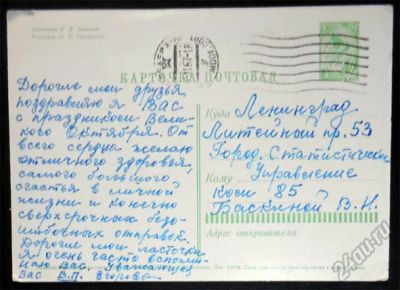 КАРТОЧКА ПОЧТОВАЯ
Дорогие мои друзья,
поздравляю я Вас
с праздником Вели-
кого Октября. От
всего сердца желаю
отличного здоровья,
самого большого
счастья в личной
жизни и конечно
сверхсрочных безо-
шибочных отправок.
Дорогие мои ласточки
я очень часто вспоми-
наю Вас. Уважающая
Вас В.П. Егорова
Куда Ленинград
Литейный пр. 53
Город. Статистическ
Управление
Кому
комн 85
Баскиной В.Н.
Адрес отправителя:
24au.ru